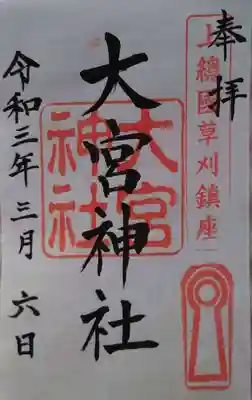 奉拝
上總國草刈鎮座
大宮神社
大宮神社
令和三年三月 六日